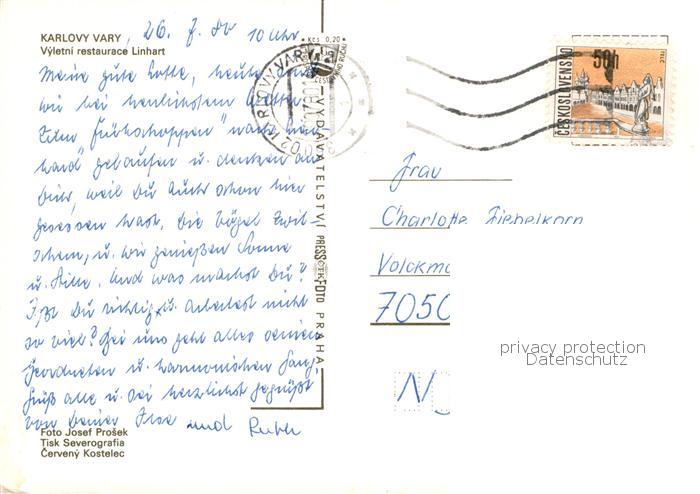 KARLOVY VARY, 26. 7. 80 10 Uhr
Výletní restaurace Linhart
Meine gute Lotte, heute sind
wir bei herrlichstem Wetter
zum Frühschoppen "nach Lin-
hard" gelaufen u. denken an
Dich, weil Du auch schon hier
gesessen hast. Die Vögel zwit-
schern, u. wir genießen Sonne
u. Stille. Und was machst Du?
Ißt Du richtig u. arbeitest nicht
so viel? Bei uns geht alles seinen
geordneten u. harmonischen Gang.
Grüß alle u. sei herzlichst gegrüßt
von Deiner Ilse und Ruth
Foto Josef Prošek
Tisk Severografia
Červený Kostelec
Kčs 0,20
VYDAVATELSTVÍ PRESSFOTO PRAHA
ČTK
KARLOVY VARY
ČESKOSLOVENSKO
50h
Frau
Charlotte Fiebelkorn
Volckm
7050
privacy protection
Datenschutz